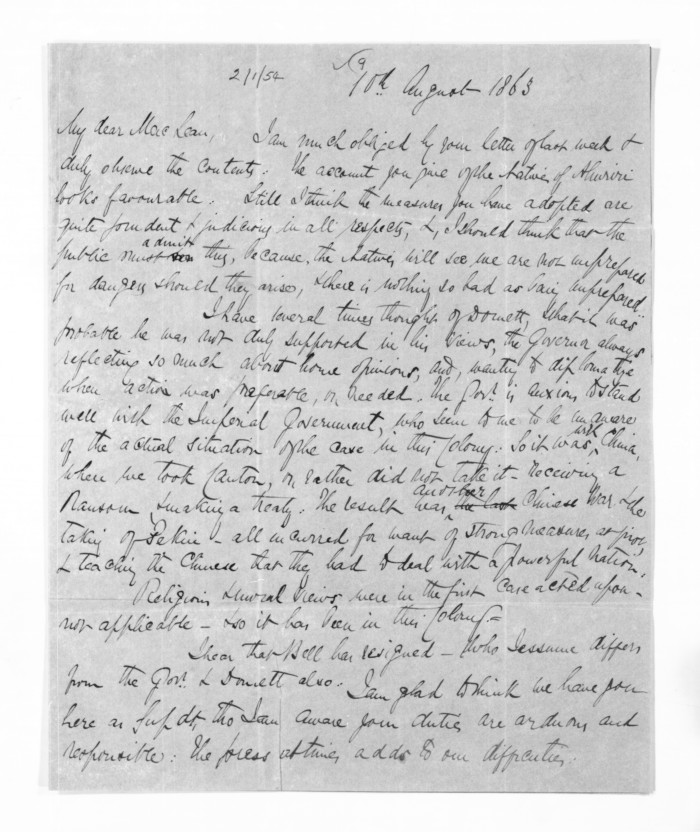 2/1/54
10th August 1863
My dear MacLean, I am much obliged by your letter of last week &
duly observe the contents. The account you give of the Natives of Ahuriri
looks favourable. Still I think the measures you have adopted are
quite prudent & judicious in all respects, &, I should think that the
public must admit this, because, the Natives will see we are not unprepared
for danger should they arise, & there is nothing so bad as being unprepared.
I have several times thought of Domett, that it was
probable he was not duly supported in his views, the Governor always
reflecting so much about home opinions, and, wanting to diplomatise
when action was preferable, or, needed. The Govr. is anxious to stand
well with the Imperial Government, who seem to me to be unaware
of the actual situation of the case in this Colony. So it was with China,
when we took Canton, or rather did not take it - receiving a
Ransom, & making a treaty. The result was another the last Chinese War & the
taking of Pekin - all incurred for want of strong measures at first,
& teaching the Chinese that they had to deal with a powerful Nation.
Religious & moral views were in the first case acted upon -
not applicable - & so it has been in this Colony -
I hear that Bell has resigned - who I assume differs
from the Govr. & Domett also. I am glad to think we have you
here as Supdt, tho I am aware your duties are arduous and
responsible: The press at times adds to our difficulties.